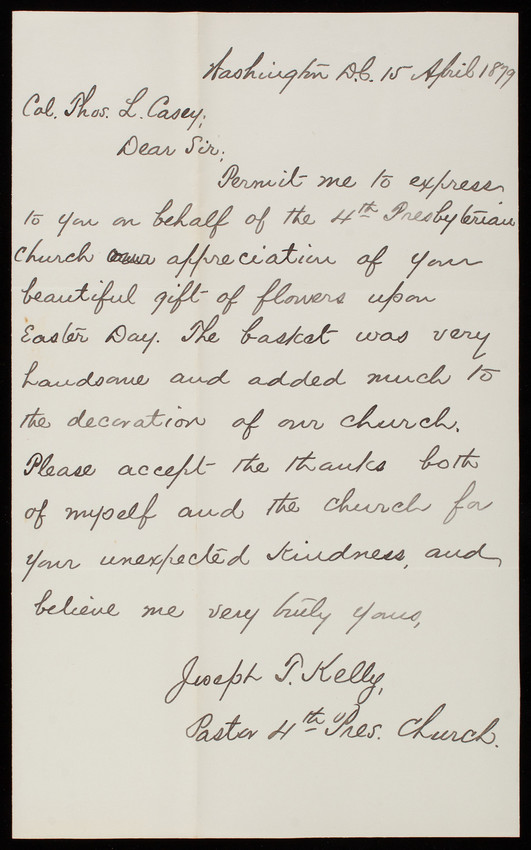 Washington D.C. 15 April 1879
Col. Thos. L. Casey;
Dear Sir;
Permit me to express
to you on behalf of the 4th Presbyterian
Church our appreciation of your
beautiful gift of flowers upon
Easter Day. The basket was very
handsome and added much to
the decoration of our church.
Please accept the thanks both
of myself and the church for
your unexpected kindness, and
believe me very truly yours,
Joseph T. Kelly,
Pastor 4th Pres. Church.